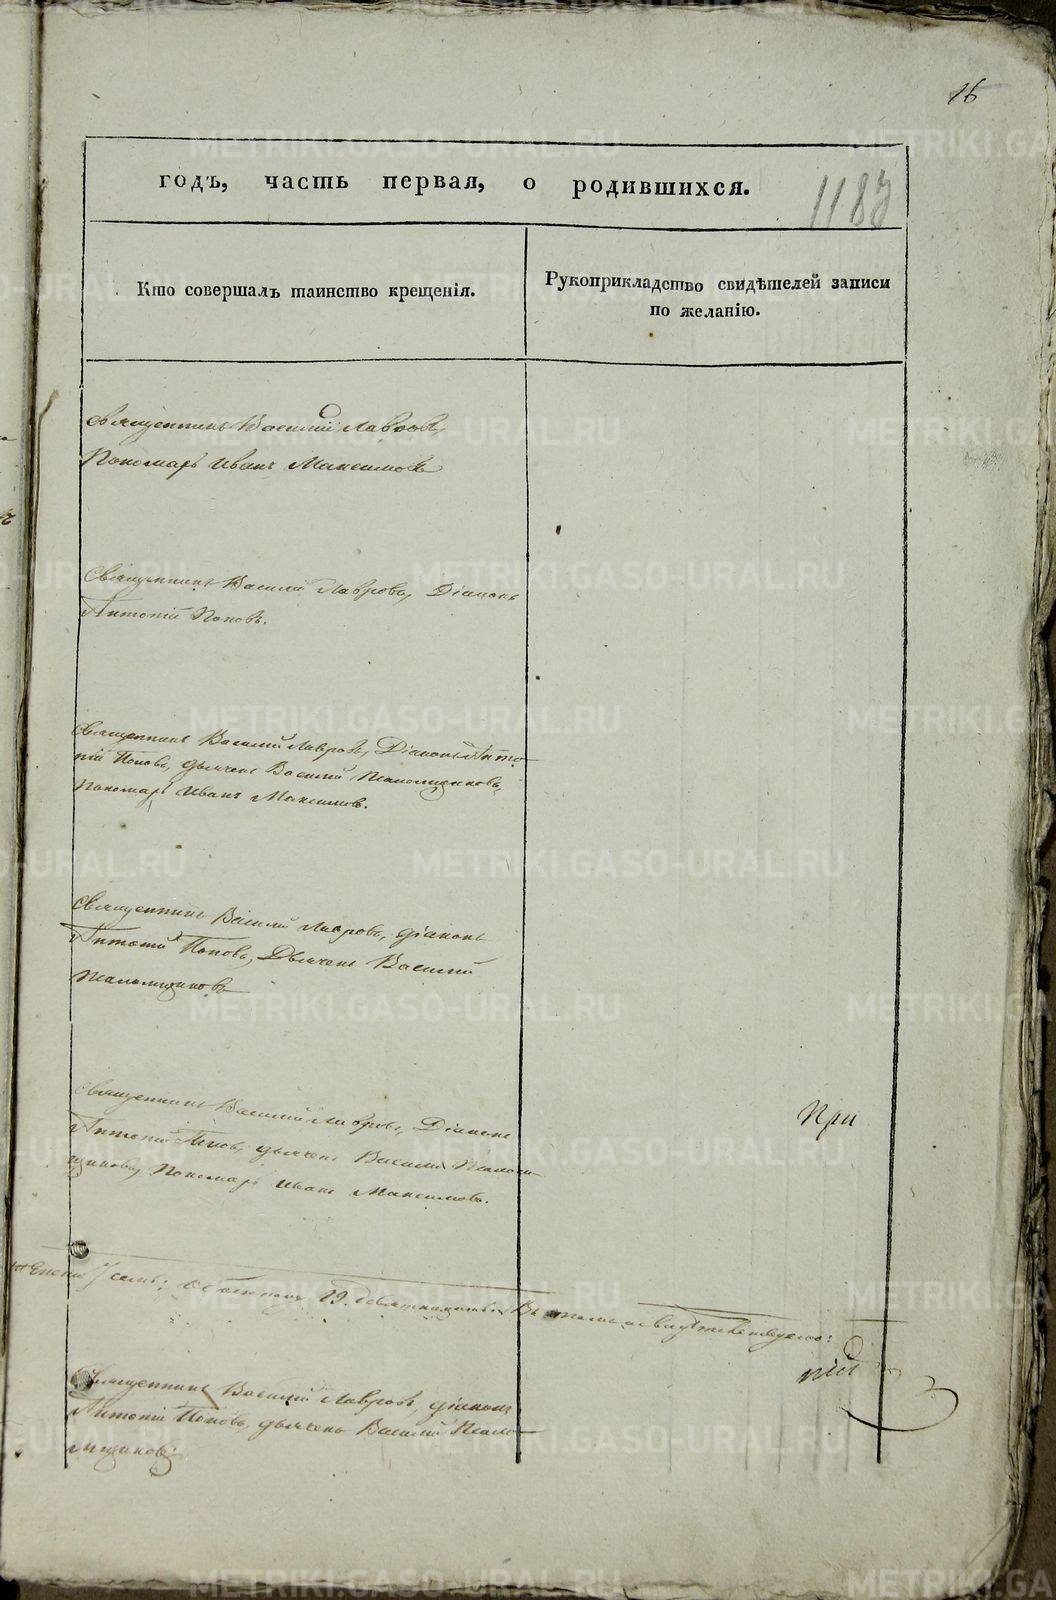 16
годъ, часть первая, о родившихся.
1183
Кто совершалъ таинство крещенія.
Рукоприкладство свидѣтелей записи
по желанію.
Священникъ Василій Лавровъ,
Пономарь Иванъ Максимовъ
Священникъ Василій Лавровъ, Діаконъ
Антоній Поповъ.
Священникъ Василій Лавровъ, Діаконъ Анто
ній Поповъ, дьячекъ Василій
Пономарь Иванъ Максимовъ.
Священникъ Василій Лавровъ, діаконъ
Антоній Поповъ, Дьячекъ Василій
Священникъ Василій Лавровъ, Діаконъ
Антоній Поповъ, дьячекъ Василій
Пономарь Иванъ Максимовъ.
При
7 семь; 19. девятнадцать. Въ томъ и свидѣтельствуемъ:
Священникъ Василій Лавровъ, діаконъ
Антоній Поповъ, дьячекъ Василій
METRIKI.GASO-URAL.RU